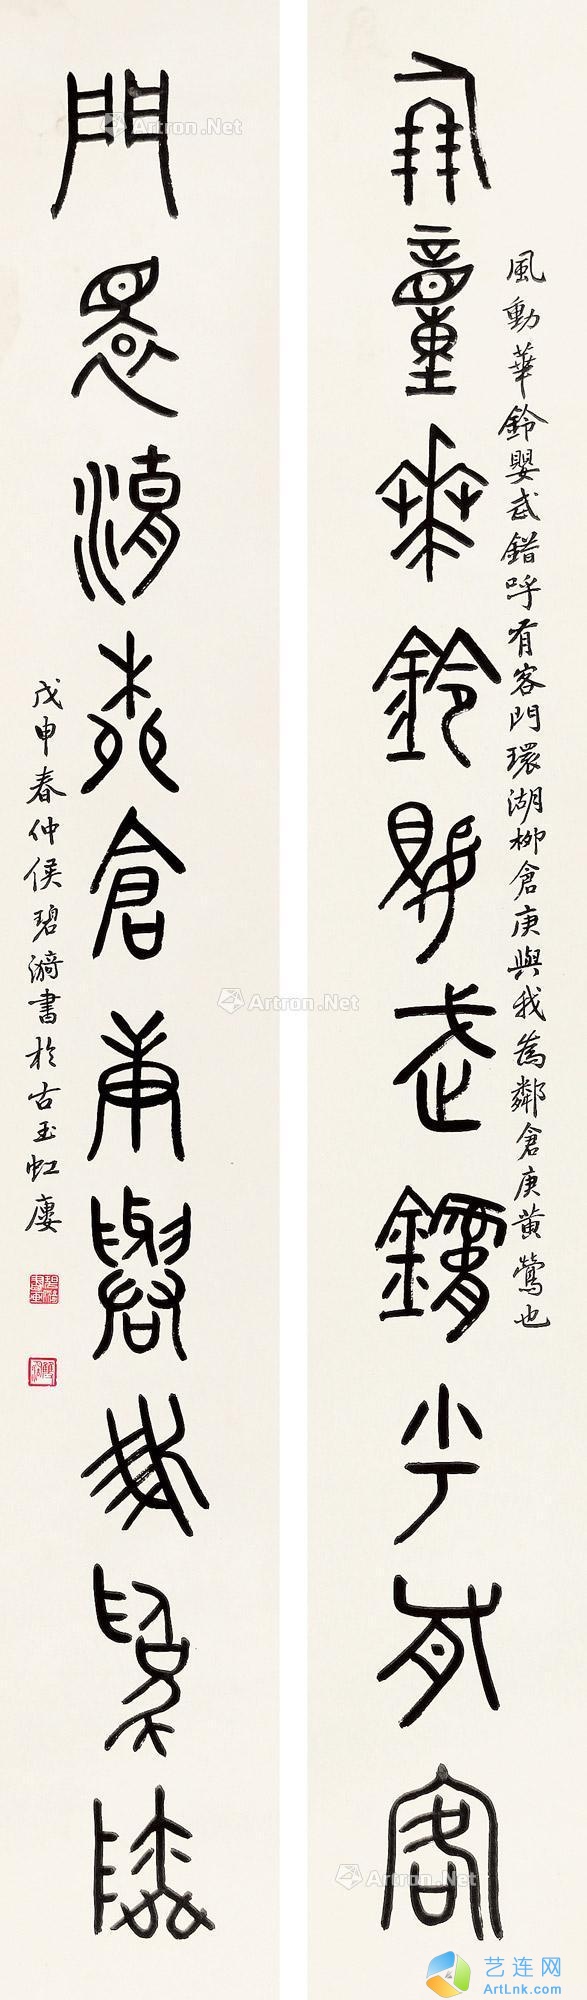 風動華鈴嬰武錯呼有客
風動華鈴嬰武錯呼有客門環湖柳倉庚與我為鄰倉庚黃鶯也
門環湖柳倉庚與我為鄰
戊申春仲侯碧漪書於古玉虹廔
Artron.Net
Artron.Net
Artron.Net
艺连网
ArtLnk.com